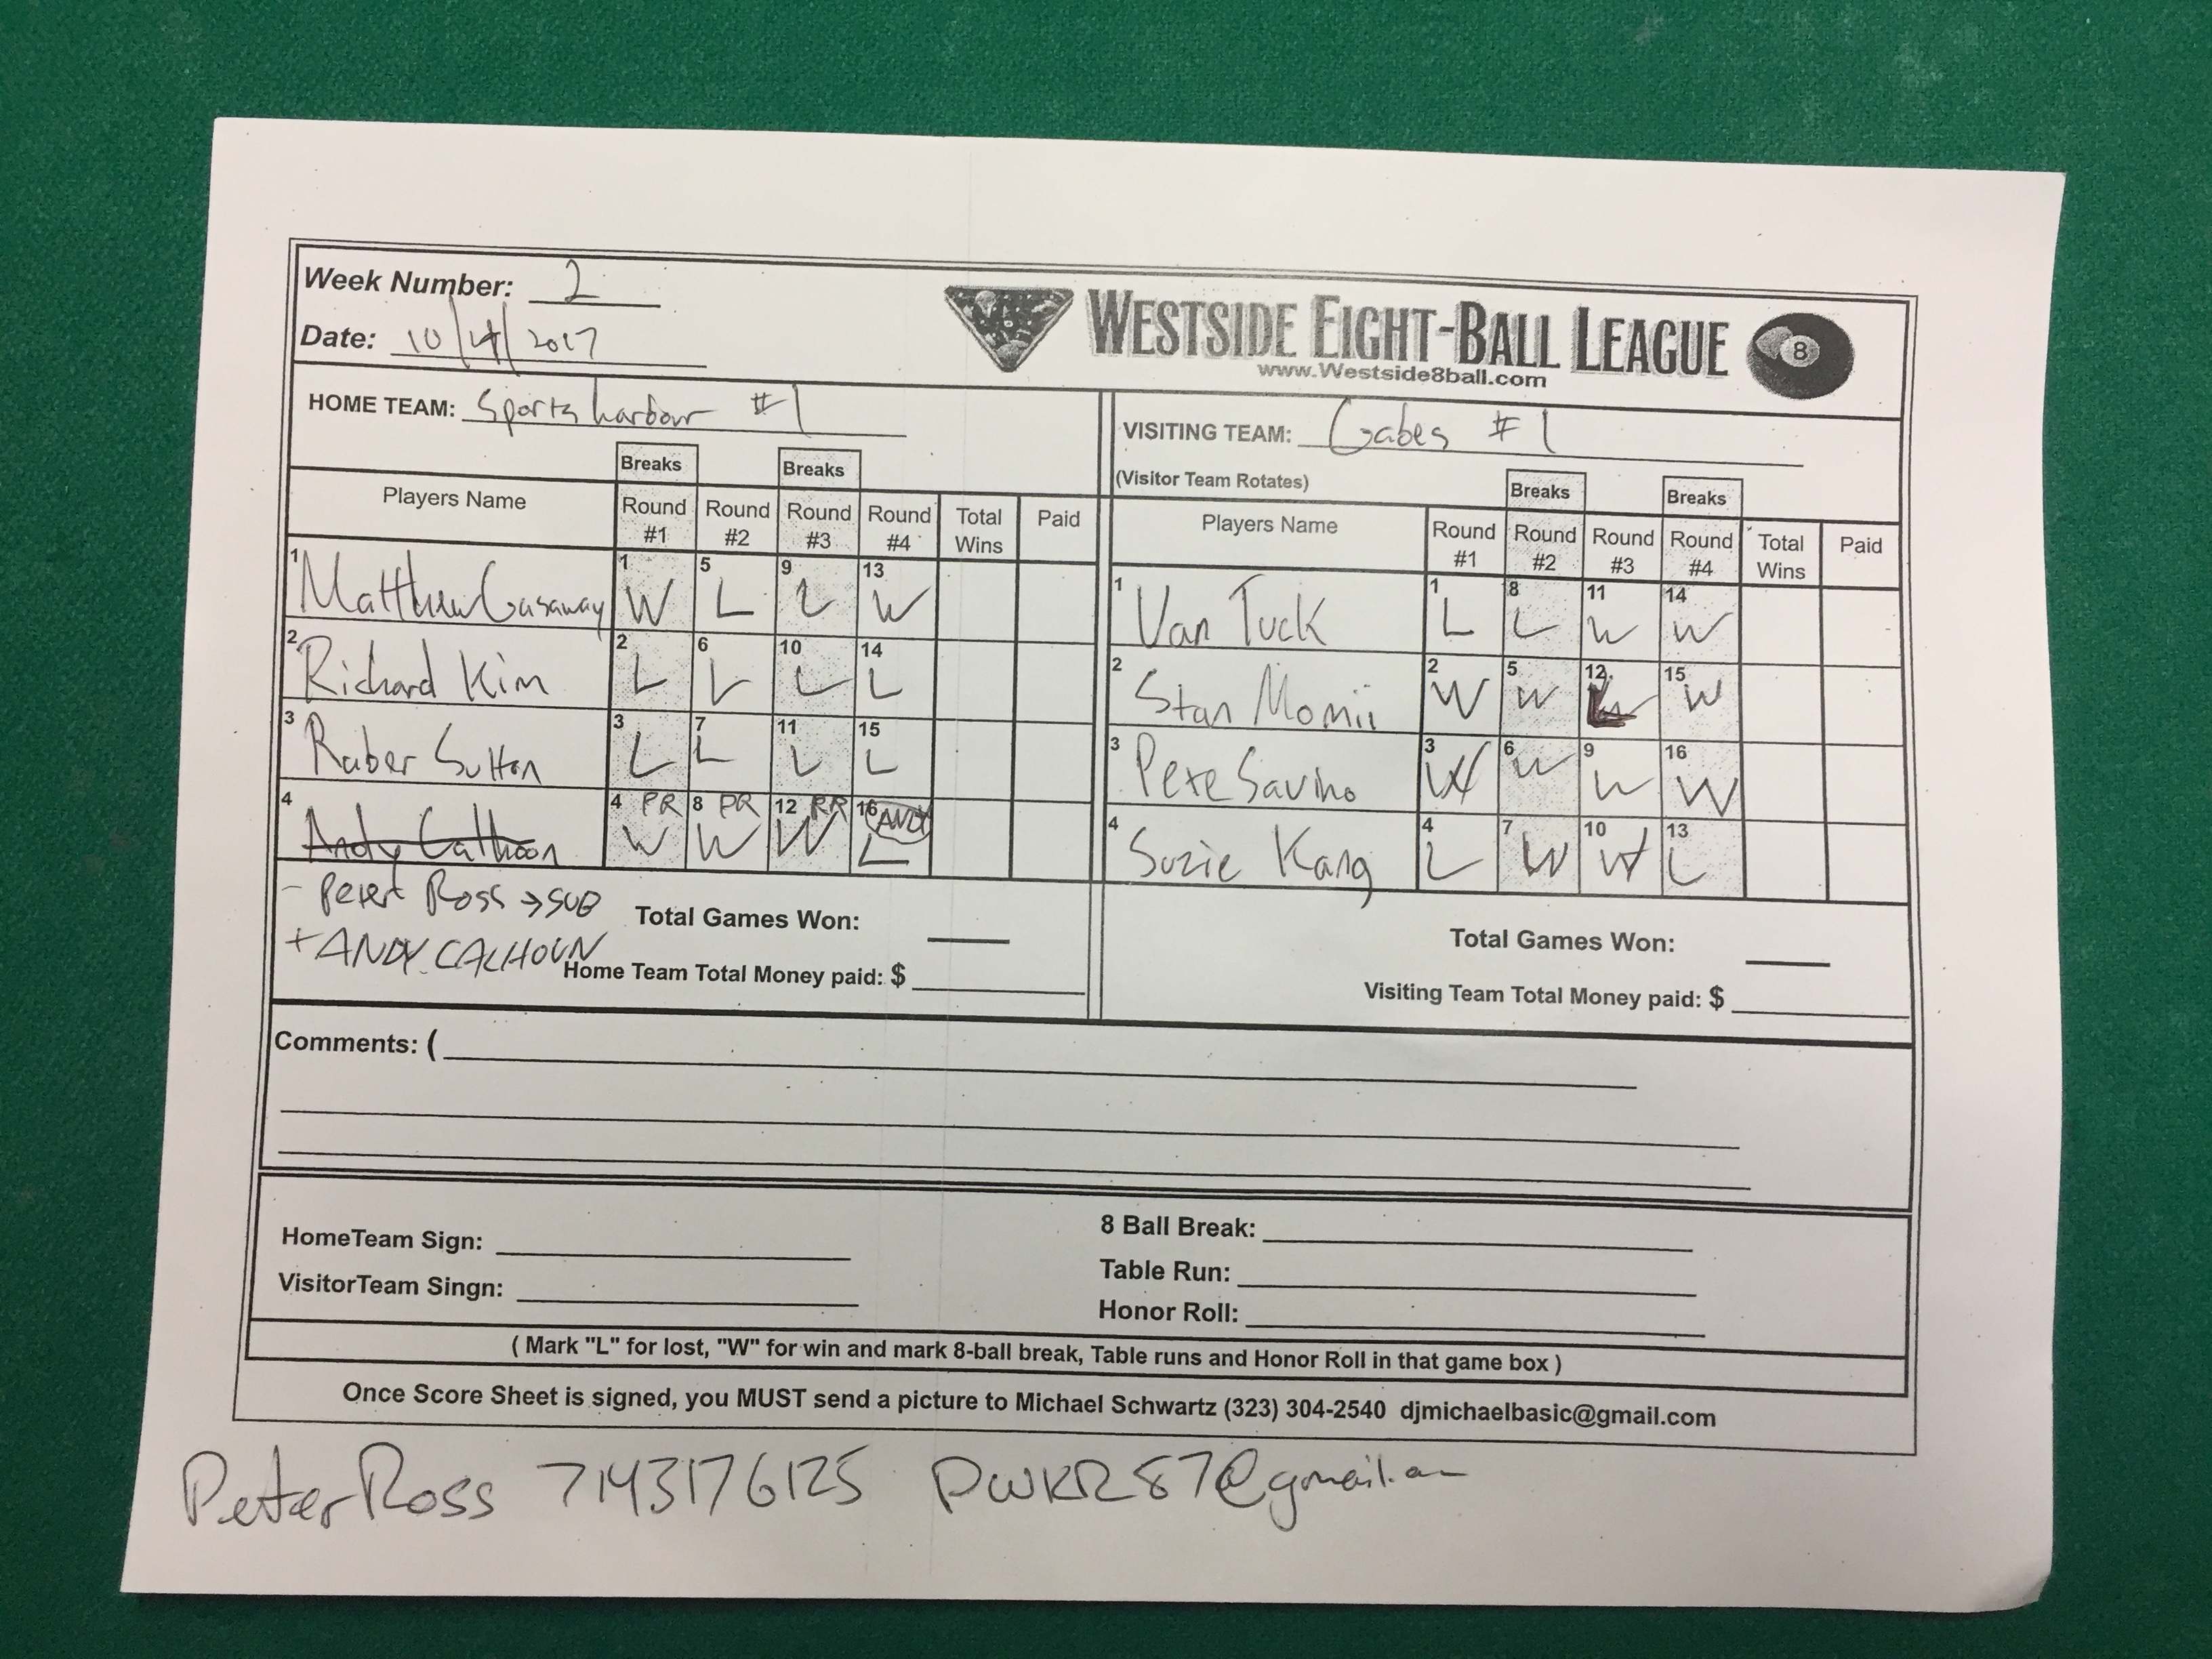 Week Number: 2
Date: 10/4/2017
WESTSIDE EIGHT-BALL LEAGUE 8
www.Westside8ball.com
HOME TEAM: Sports harbour #1
VISITING TEAM: Gabes #1
(Visitor Team Rotates)
Breaks Breaks
Breaks Breaks
Players Name Round #1 Round #2 Round #3 Round #4 Total Wins Paid
1 Matthew Gasaway 1 W 5 L 9 L 13 W
2 Richard Kim 2 L 6 L 10 L 14 L
3 Raber Sutton 3 L 7 L 11 L 15 L
4 Andy Calhoon 4 PR W 8 PR W 12 PR W 16 L
- Peter Ross → SUB
+ ANDY CALHOUN
Total Games Won:
Home Team Total Money paid: $
Players Name Round #1 Round #2 Round #3 Round #4 Total Wins Paid
1 Van Tuck 1 L 8 L 11 W 14 W
2 Stan Momii 2 W 5 W 12 L 15 W
3 Pete Savino 3 W 6 W 9 W 16 W
4 Suzie Kang 4 L 7 W 10 W 13 L
Total Games Won:
Visiting Team Total Money paid: $
Comments: (
HomeTeam Sign:
VisitorTeam Singn:
8 Ball Break:
Table Run:
Honor Roll:
( Mark "L" for lost, "W" for win and mark 8-ball break, Table runs and Honor Roll in that game box )
Once Score Sheet is signed, you MUST send a picture to Michael Schwartz (323) 304-2540 djmichaelbasic@gmail.com
Peter Ross 7143176125 PWKR87@gmail.com